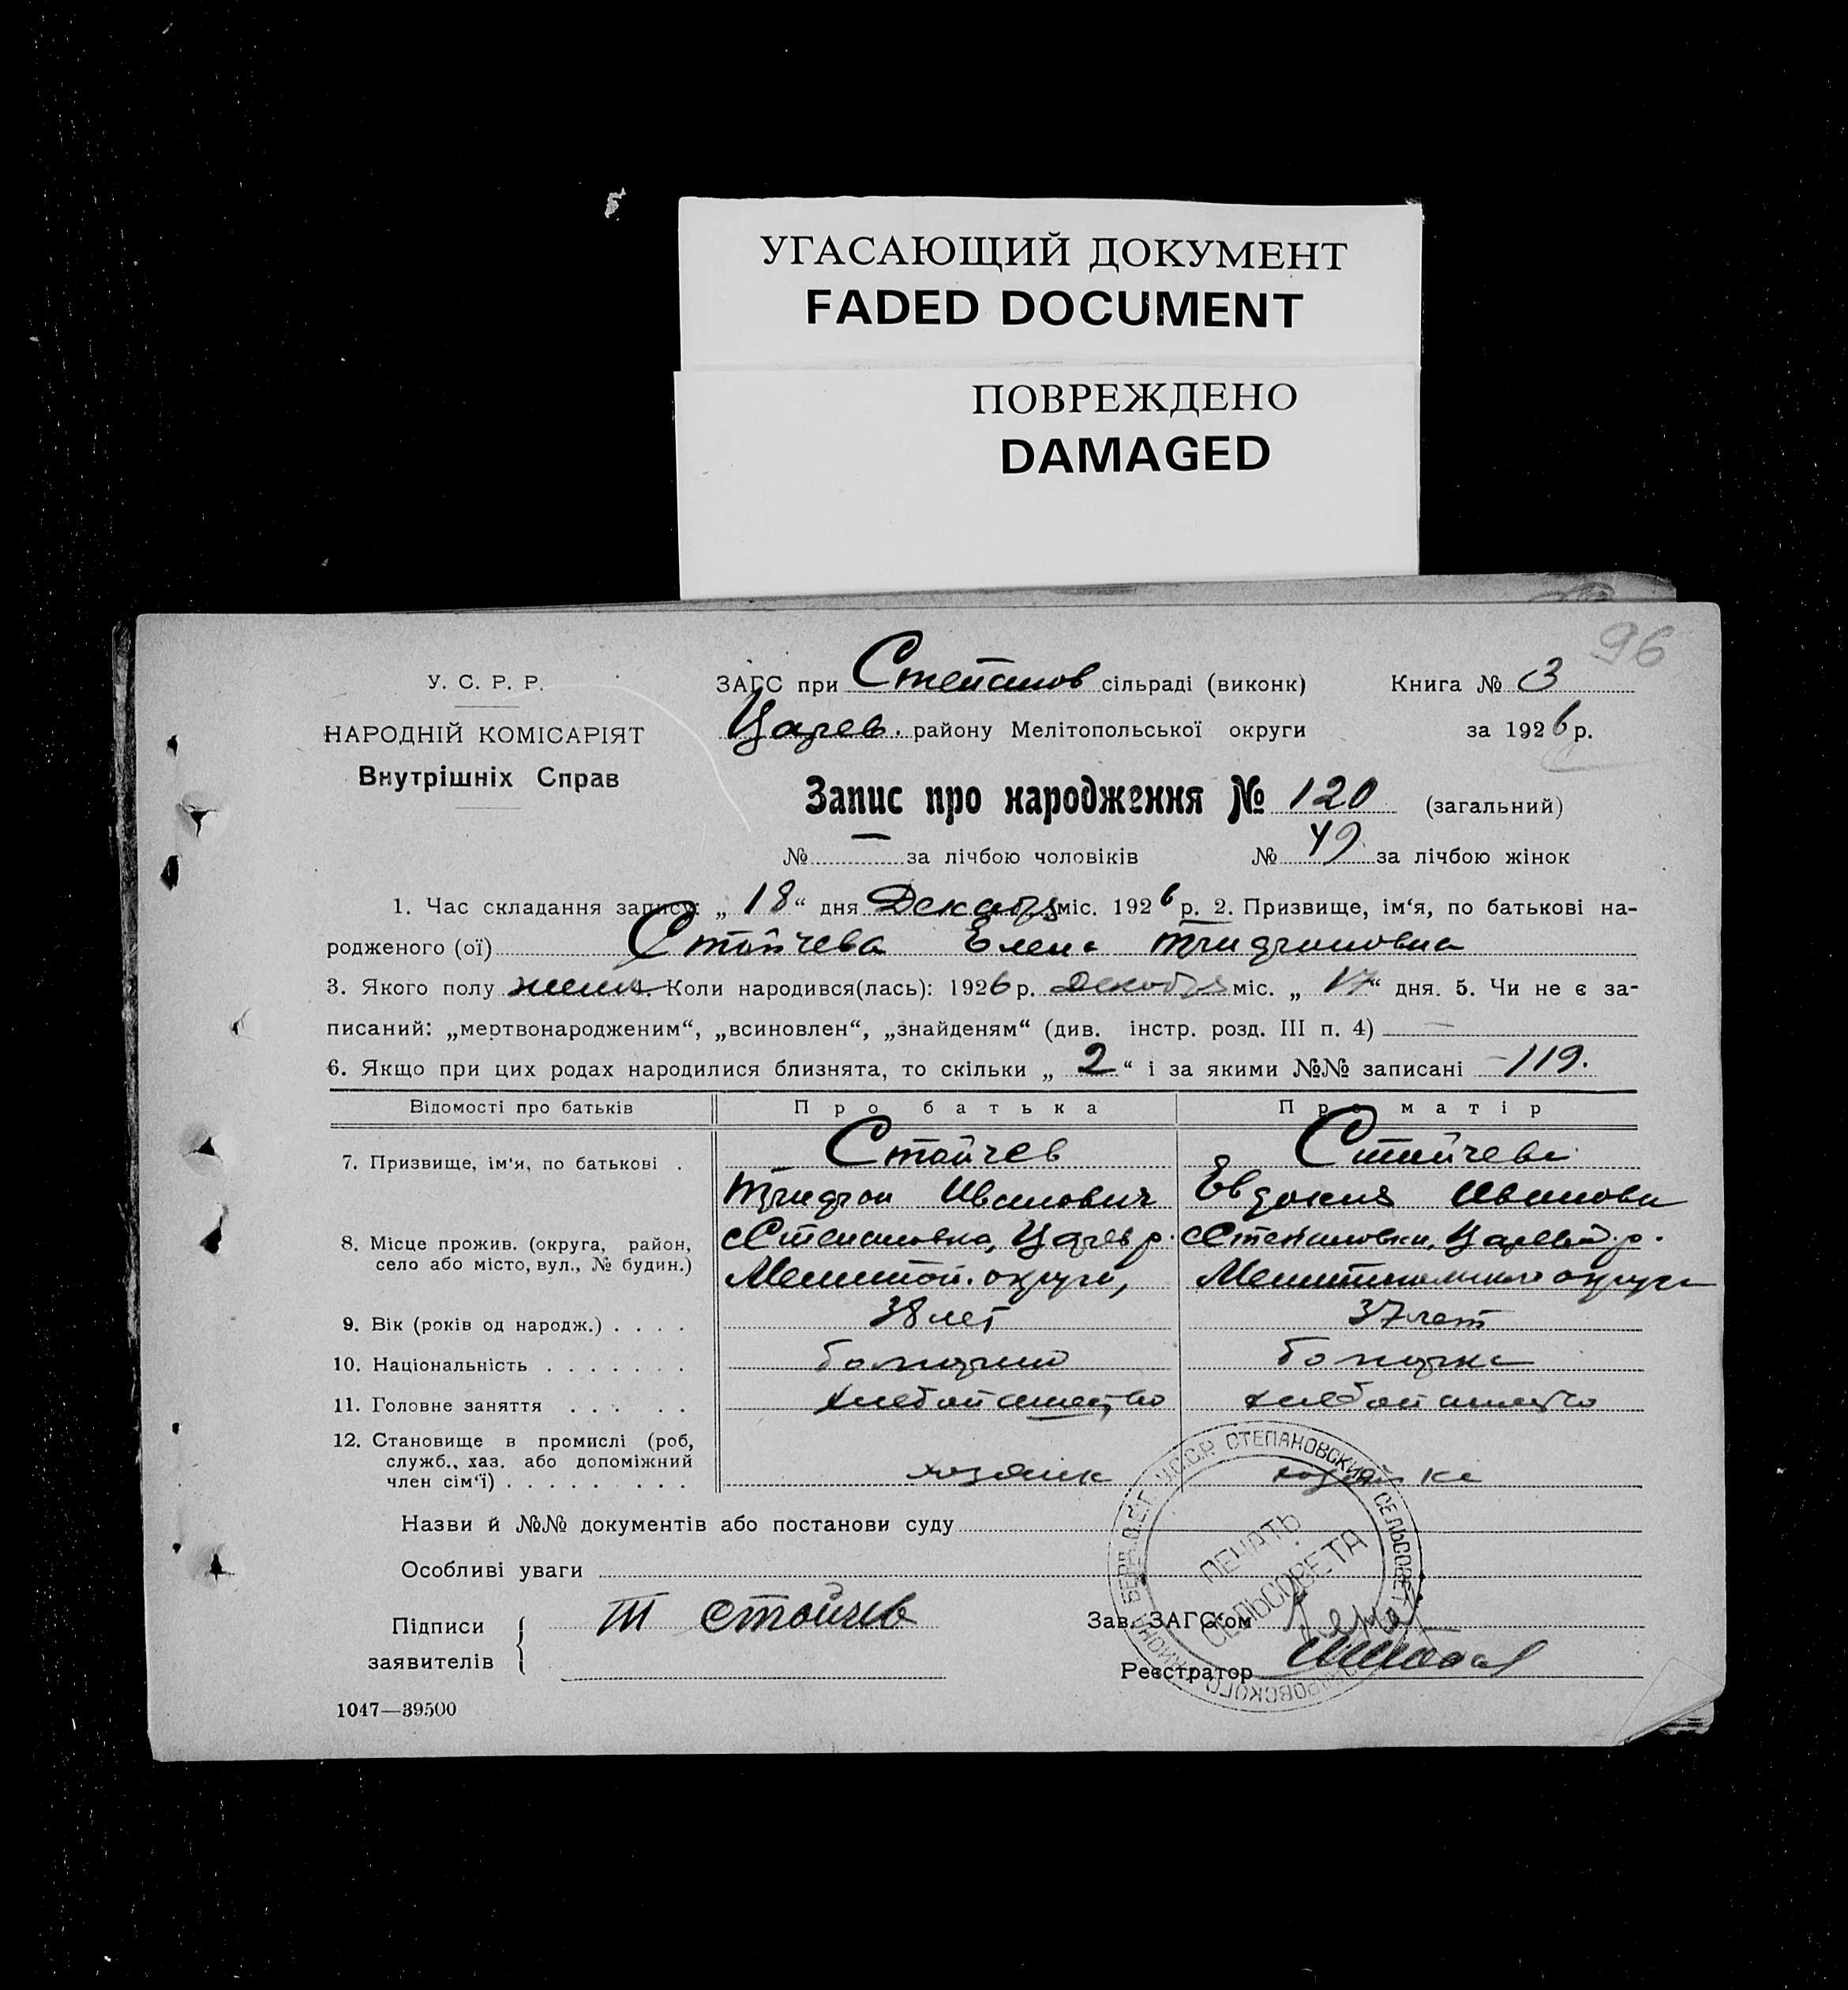 УГАСАЮЩИЙ ДОКУМЕНТ
FADED DOCUMENT
ПОВРЕЖДЕНО
DAMAGED
96
У. С. Р. Р.
НАРОДНІЙ КОМІСАРІЯТ
Внутрішніх Справ
ЗАГС при Степанов сільраді (виконк) Книга № 3
Царев. району Мелітопольської округи за 1926 р.
Запис про народження № 120 (загальний)
№ — за лічбою чоловіків № 49 за лічбою жінок
1. Час складання запису: „ 18 “ дня Декабря міс. 1926 р. 2. Призвище, ім‘я, по батькові на-
родженого (ої) Стойчева Елена Тридоновна
3. Якого полу женск. Коли народився(лась): 1926 р. Декабря міс. „ 17 “ дня. 5. Чи не є за-
писаний: „мертвонародженим“, „всиновлен“, „знайденям“ (див. інстр. розд. III п. 4) —
6. Якщо при цих родах народилися близнята, то скільки „ 2 “ і за якими №№ записані 119.
Відомості про батьків Про батька Про матір
7. Призвище, ім‘я, по батькові . Стойчев Стойчева
Иванович Евдокия Иванова
8. Місце прожив. (округа, район, с Степановка, Царев р. с Степановки, Царевой р.
село або місто, вул., № будин.) Мелитоп. округа, Мелитопольского округа
9. Вік (років од народж.) . . . . 38 лет 37 лет
10. Національність . . . . . . . болгарин болгарка
11. Головне заняття . . . . . хлебопашество хлебопашество
12. Становище в промислі (роб,
служб., хаз. або допоміжний
член сім‘ї) . . . . . . . . . хозяин хозяйка
Назви й №№ документів або постанови суду
Особливі уваги
Підписи
заявителів
Т Стойчев
Зав. ЗАГС‘ом
Реєстратор
У.С.С.Р. СТЕПАНОВСКИЙ СЕЛЬСОВЕТ
ПЕЧАТЬ
СЕЛЬСОВЕТА
1047—39500